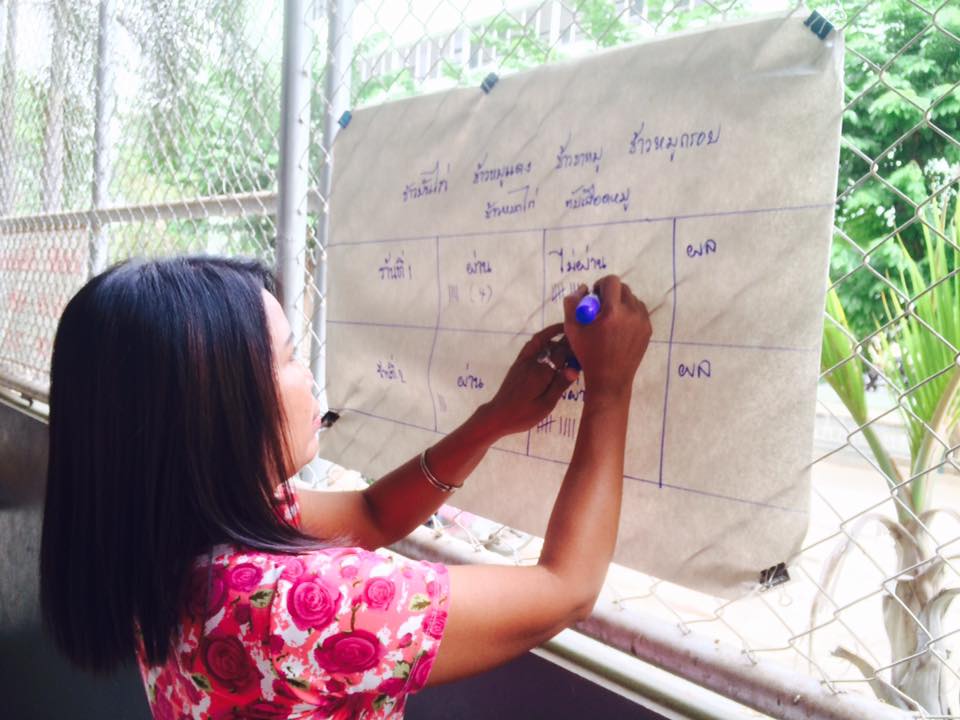 ข้าวมันไก่ ข้าวหมูแดง ข้าวขาหมู ข้าวหมูกรอบ
ข้าวหมกไก่ ต้มเลือดหมู
ร้านที่ 1 ผ่าน ไม่ผ่าน ผล
(4)
ร้านที่ 2 ผ่าน ผล